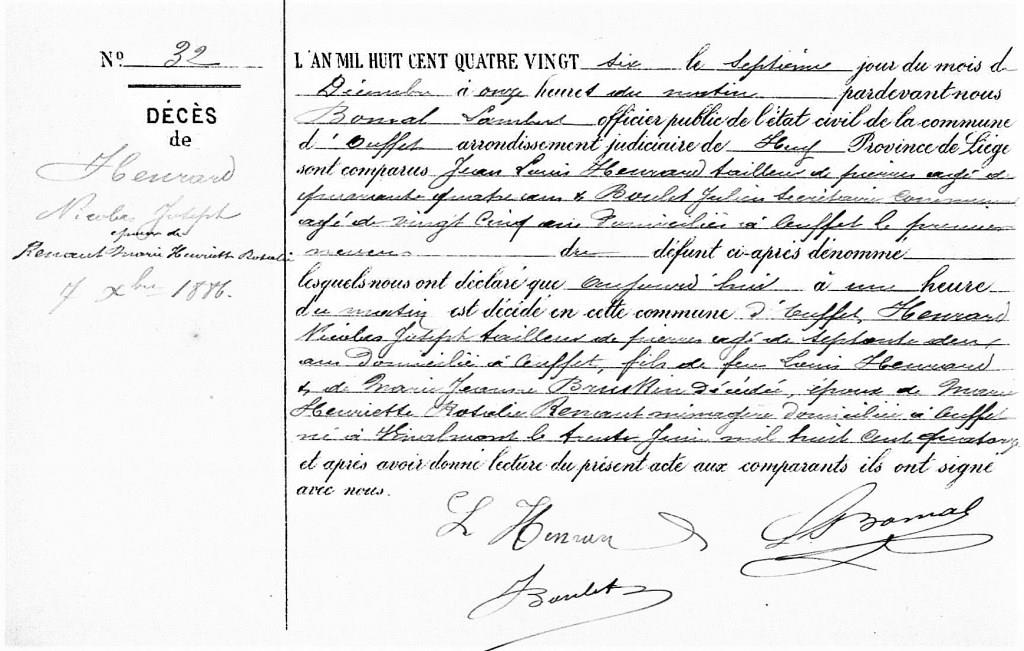 Nº 32
DÉCÈS
de
Henrard
Nicolas Joseph
époux de
Renaut Marie Henriette Rosalie
7 Xbre 1886.
L'AN MIL HUIT CENT QUATRE VINGT six le septième jour du mois d
Décembre à onze heures du matin pardevant nous
Bomal Lambert officier public de l'état civil de la commune
d'Ouffet arrondissement judiciaire de Huy Province de Liége
sont comparus Jean Louis Henrard tailleur de pierres agé de
quarante quatre ans & Boulet Julien Secrétaire communal
agé de vingt cinq ans domiciliés à Ouffet le premier
neveu du défunt ci-après dénommé
lesquels nous ont déclaré que aujourd'hui à une heure
du matin est décédé en cette commune d'Ouffet, Henrard
Nicolas Joseph tailleur de pierres agé de septante deux
ans domicilié à Ouffet, fils de feu Louis Henrard
& de Marie Jeanne décédée, époux de Marie
Henriette Rosalie Renaut ménagère domiciliée à Ouffet
né à le trente Juin mil huit cent quatorze
et après avoir donné lecture du présent acte aux comparants ils ont signé
avec nous.
L Henrard
L Bomal
Boulet